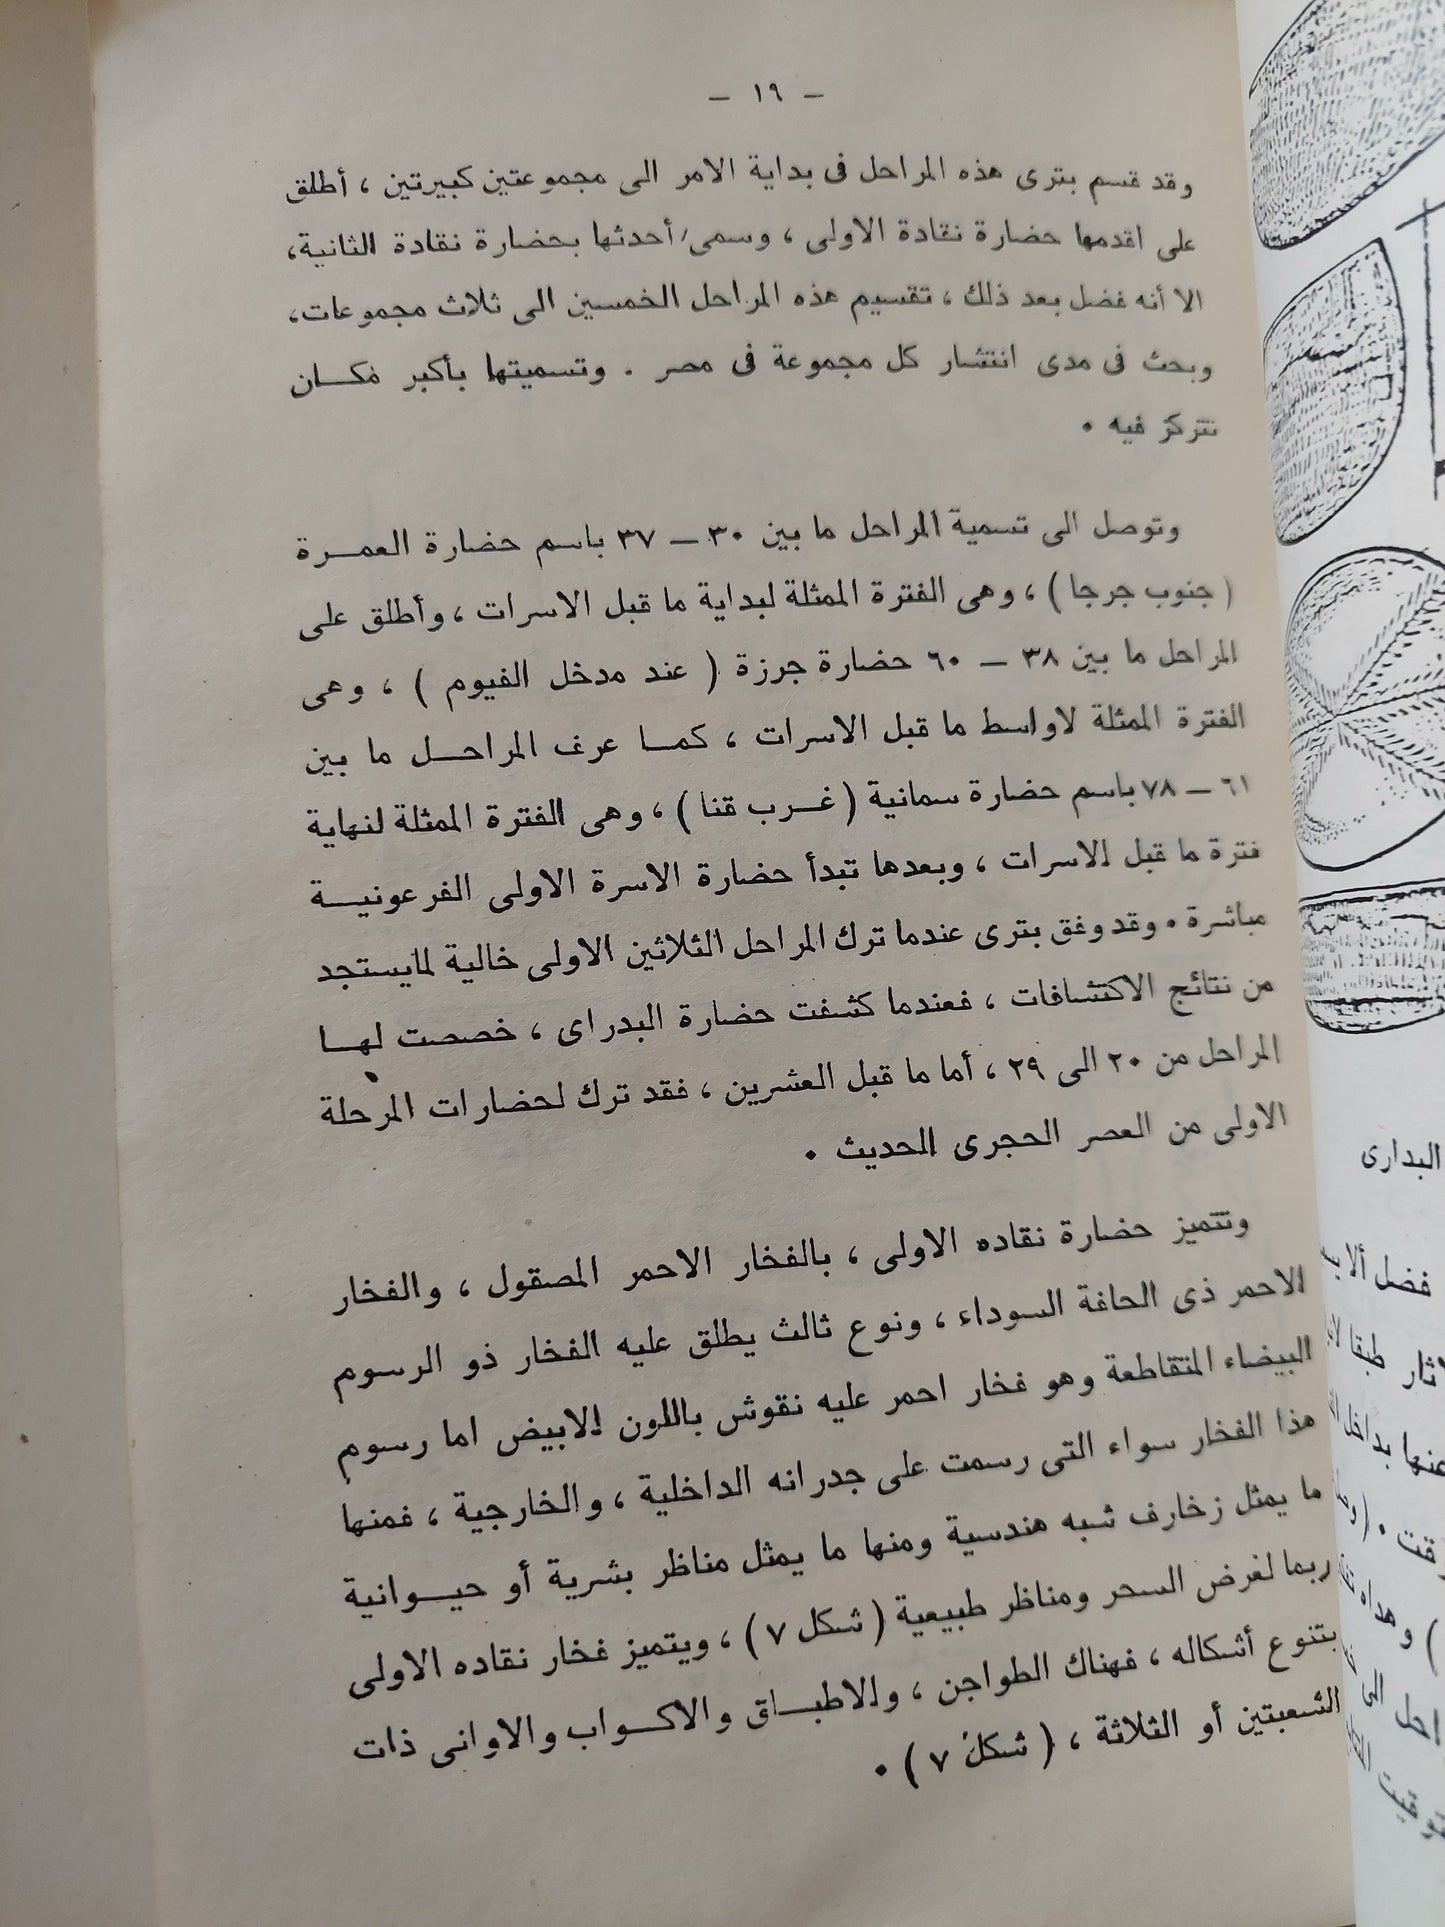 — ١٩ —
وقد قسم بترى هذه المراحل فى بداية الامر الى مجموعتين كبيرتين ، أطلق
على اقدمها حضارة نقادة الاولى ، وسمى أحدثها بحضارة نقادة الثانية،
الا أنه فضل بعد ذلك ، تقسيم هذه المراحل الخمسين الى ثلاث مجموعات،
وبحث فى مدى انتشار كل مجموعة فى مصر . وتسميتها بأكبر مكان
تتركز فيه .
وتوصل الى تسمية المراحل ما بين ٣٠ — ٣٧ باسم حضارة العمرة
( جنوب جرجا ) ، وهى الفترة الممثلة لبداية ما قبل الاسرات ، وأطلق على
المراحل ما بين ٣٨ — ٦٠ حضارة جرزة ( عند مدخل الفيوم ) ، وهى
الفترة الممثلة لاواسط ما قبل الاسرات ، كما عرف المراحل ما بين
٦١ — ٧٨ باسم حضارة سمانية ( غرب قنا ) ، وهى الفترة الممثلة لنهاية
فترة ما قبل الاسرات ، وبعدها تبدأ حضارة الاسرة الاولى الفرعونية
مباشرة . وقد وفق بترى عندما ترك المراحل الثلاثين الاولى خالية لمايستجد
من نتائج الاكتشافات ، فعندما كشفت حضارة البدراى ، خصصت لها
المراحل من ٢٠ الى ٢٩ ، أما ما قبل العشرين ، فقد ترك لحضارات المرحلة
الاولى من العصر الحجرى الحديث .
وتتميز حضارة نقاده الاولى ، بالفخار الاحمر المصقول ، والفخار
الاحمر ذى الحافة السوداء ، ونوع ثالث يطلق عليه الفخار ذو الرسوم
البيضاء المتقاطعة وهو فخار احمر عليه نقوش باللون الابيض اما رسوم
هذا الفخار سواء التى رسمت على جدرانه الداخلية ، والخارجية ، فمنها
ما يمثل زخارف شبه هندسية ومنها ما يمثل مناظر بشرية أو حيوانية
ربما لغرض السحر ومناظر طبيعية ( شكل ٧ ) ، ويتميز فخار نقاده الاولى
بتنوع أشكاله ، فهناك الطواجن ، والاطباق والاكواب والاوانى ذات
الشعبتين أو الثلاثة ، ( شكل ٧ ) .
البدارى